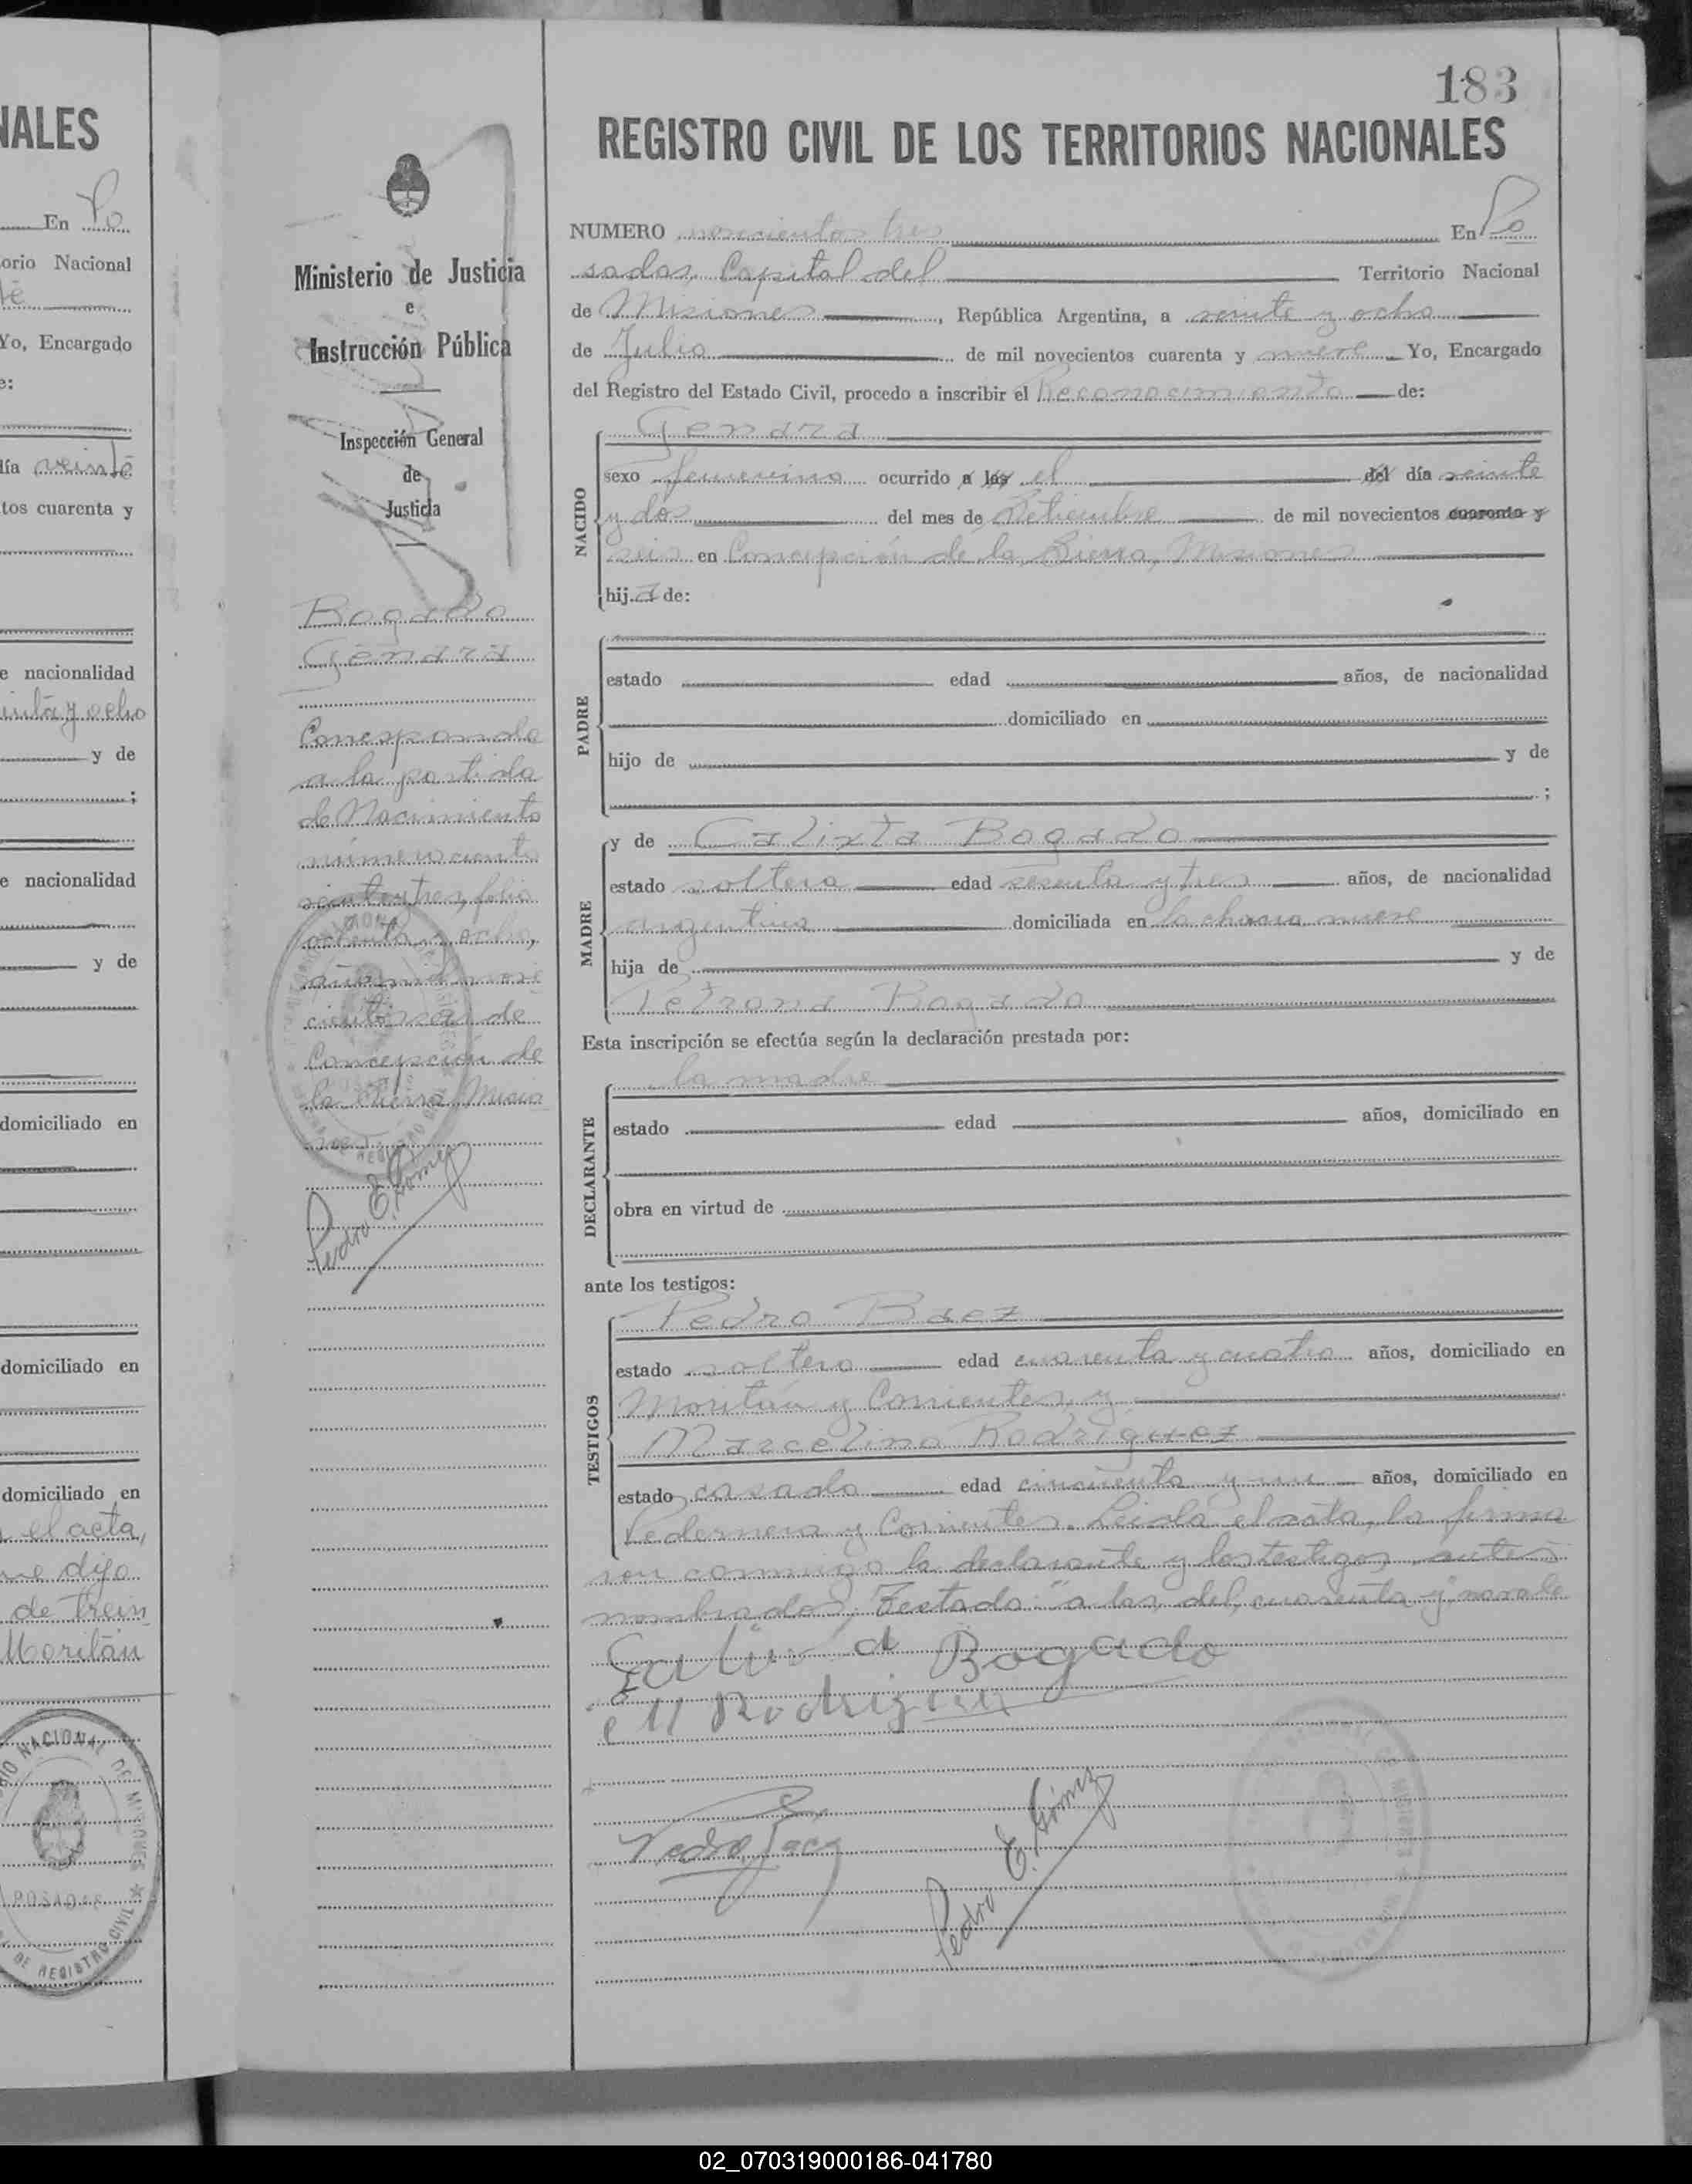 NALES
En Po
orio Nacional
Yo, Encargado
e:
día veinte
tos cuarenta y
e nacionalidad
y ocho
y de
;
e nacionalidad
y de
domiciliado en
domiciliado en
domiciliado en
el acta,
ue dijo
de trein
Moritán
NACIONAL DE MISIONES
POSADAS
DE REGISTRO CIVIL
Ministerio de Justicia
e
Instrucción Pública
Inspección General
de
Justicia
Bogado
Genara
Corresponde
a la partida
de Nacimiento
número ciento
veinte y tres, folio
ochenta y ocho,
año mil nove
cientos seis de
Concepción de
la Sierra, Misio
nes.
Pedro E. Gómez
183
REGISTRO CIVIL DE LOS TERRITORIOS NACIONALES
NUMERO novecientos tres En Po
sadas, Capital del Territorio Nacional
de Misiones, República Argentina, a veinte y ocho
de Julio de mil novecientos cuarenta y nueve Yo, Encargado
del Registro del Estado Civil, procedo a inscribir el Reconocimiento de:
Genara
NACIDO
sexo femenino ocurrido a las el del día veinte
y dos del mes de Setiembre de mil novecientos cuarenta y
seis en Concepción de la Sierra, Misiones
hija de:
PADRE
estado edad años, de nacionalidad
domiciliado en
hijo de y de
;
MADRE
y de Calixta Bogado
estado soltera edad sesenta y tres años, de nacionalidad
argentina domiciliada en la chacra nueve
hija de y de
Petrona Bogado
Esta inscripción se efectúa según la declaración prestada por:
la madre
DECLARANTE
estado edad años, domiciliado en
obra en virtud de
ante los testigos:
TESTIGOS
Pedro Baez
estado soltero edad cuarenta y cuatro años, domiciliado en
Moritán y Corrientes, y
Marcelino Rodriguez
estado casado edad cincuenta y un años, domiciliado en
Pedernera y Corrientes. Leida el acta, la firma
ron conmigo la declarante y los testigos antes
nombrados. Testado: "a las, del, cuarenta y" no vale
Bogado
M Rodriguez
Pedro Baez
Pedro E. Gómez
02_070319000186-041780